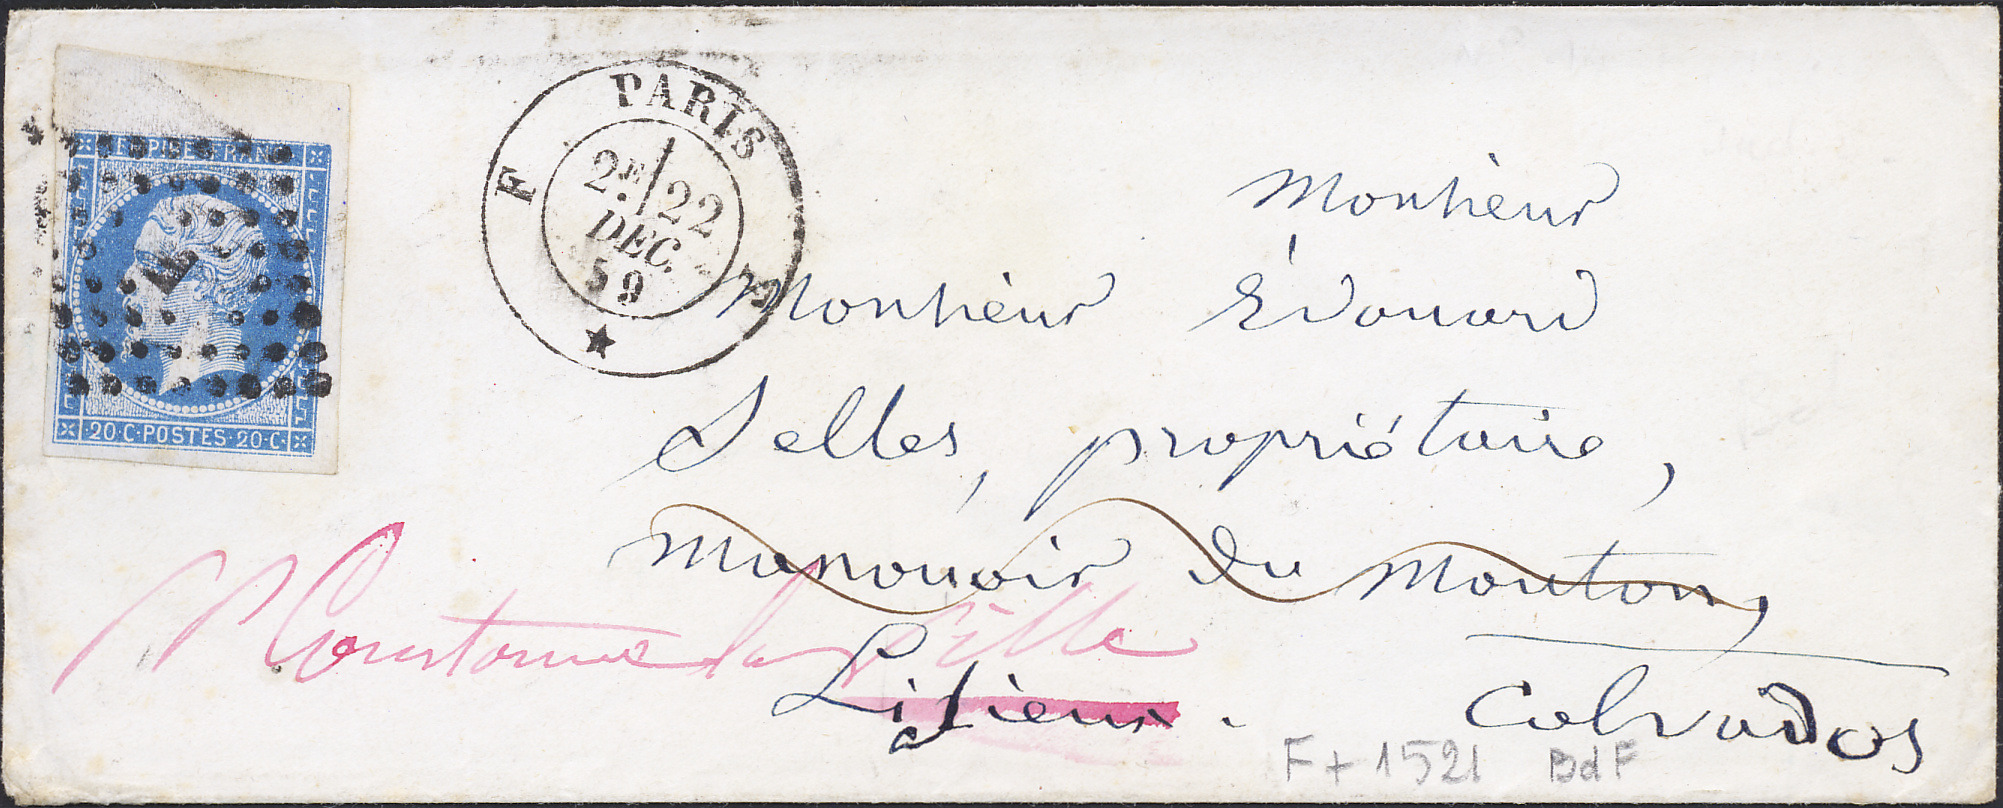 PARIS
F F
2E 22
DEC.
59
EMPIRE FRANC
F
20·C·POSTES·20·C·
Monsieur
Monsieur Edouard
Selles, propriétaire,
manouoir du Mouton,
la ville
Lisieux. Calvados
F + 1521 BdF